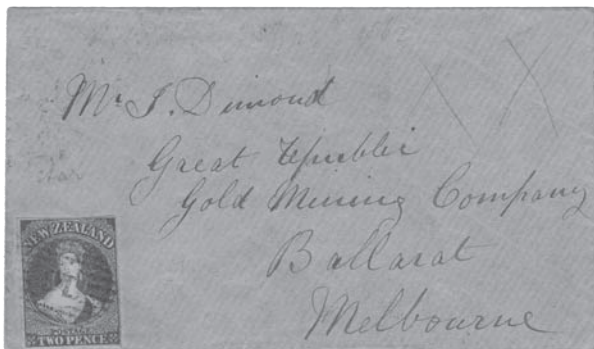 Mr J. Dimond
Great Republic
Gold Mining Company
Ballarat
Melbourne
NEW ZEALAND
POSTAGE
TWO PENCE